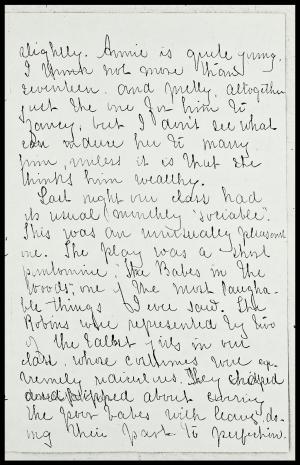 slightly. Annie is quite young,
I think not more than
seventeen, and pretty, altogether
just the one for him to
fancy, but I don't see what
can induce her to marry
him, unless it is that she
thinks him wealthy.
Last night our class had
its usual monthly "sociable".
This was an unusually pleasant
one. The play was a short
pantomime, "The Babes in the
Woods", one of the most laugha-
ble things I ever saw. The
Robins were represented by two
of the tallest girls in our
class, whose costumes were ex-
tremely ridiculous. They chirped
and hopped about covering
the poor babes with leaves, do-
ing their part to perfection.